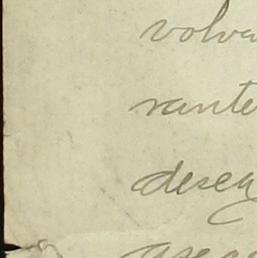 volva
rante
desea